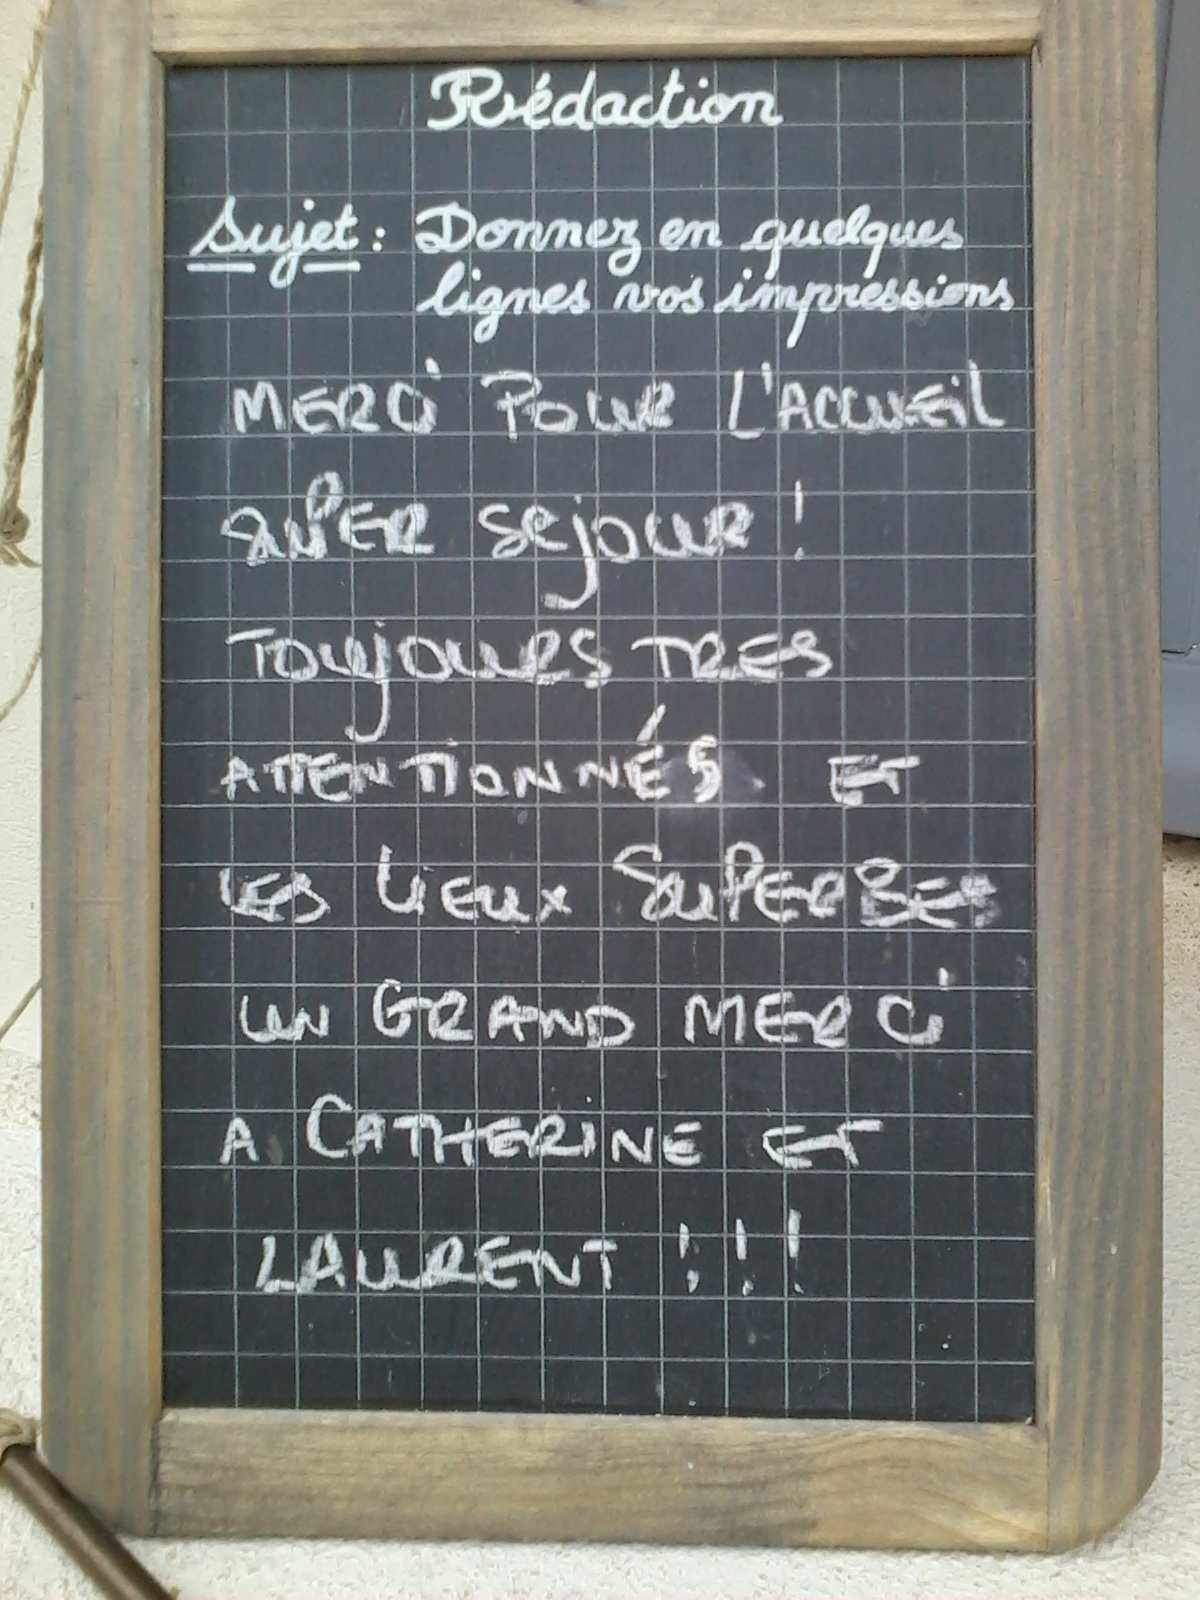 Rédaction
Sujet : Donnez en quelques
lignes vos impressions
MERCI POUR L'ACCUEIL
SUPER SEJOUR !
TOUJOURS TRES
ATTENTIONNÉS ET
LES LIEUX SUPERBES
UN GRAND MERCI
A CATHERINE ET
LAURENT !!!